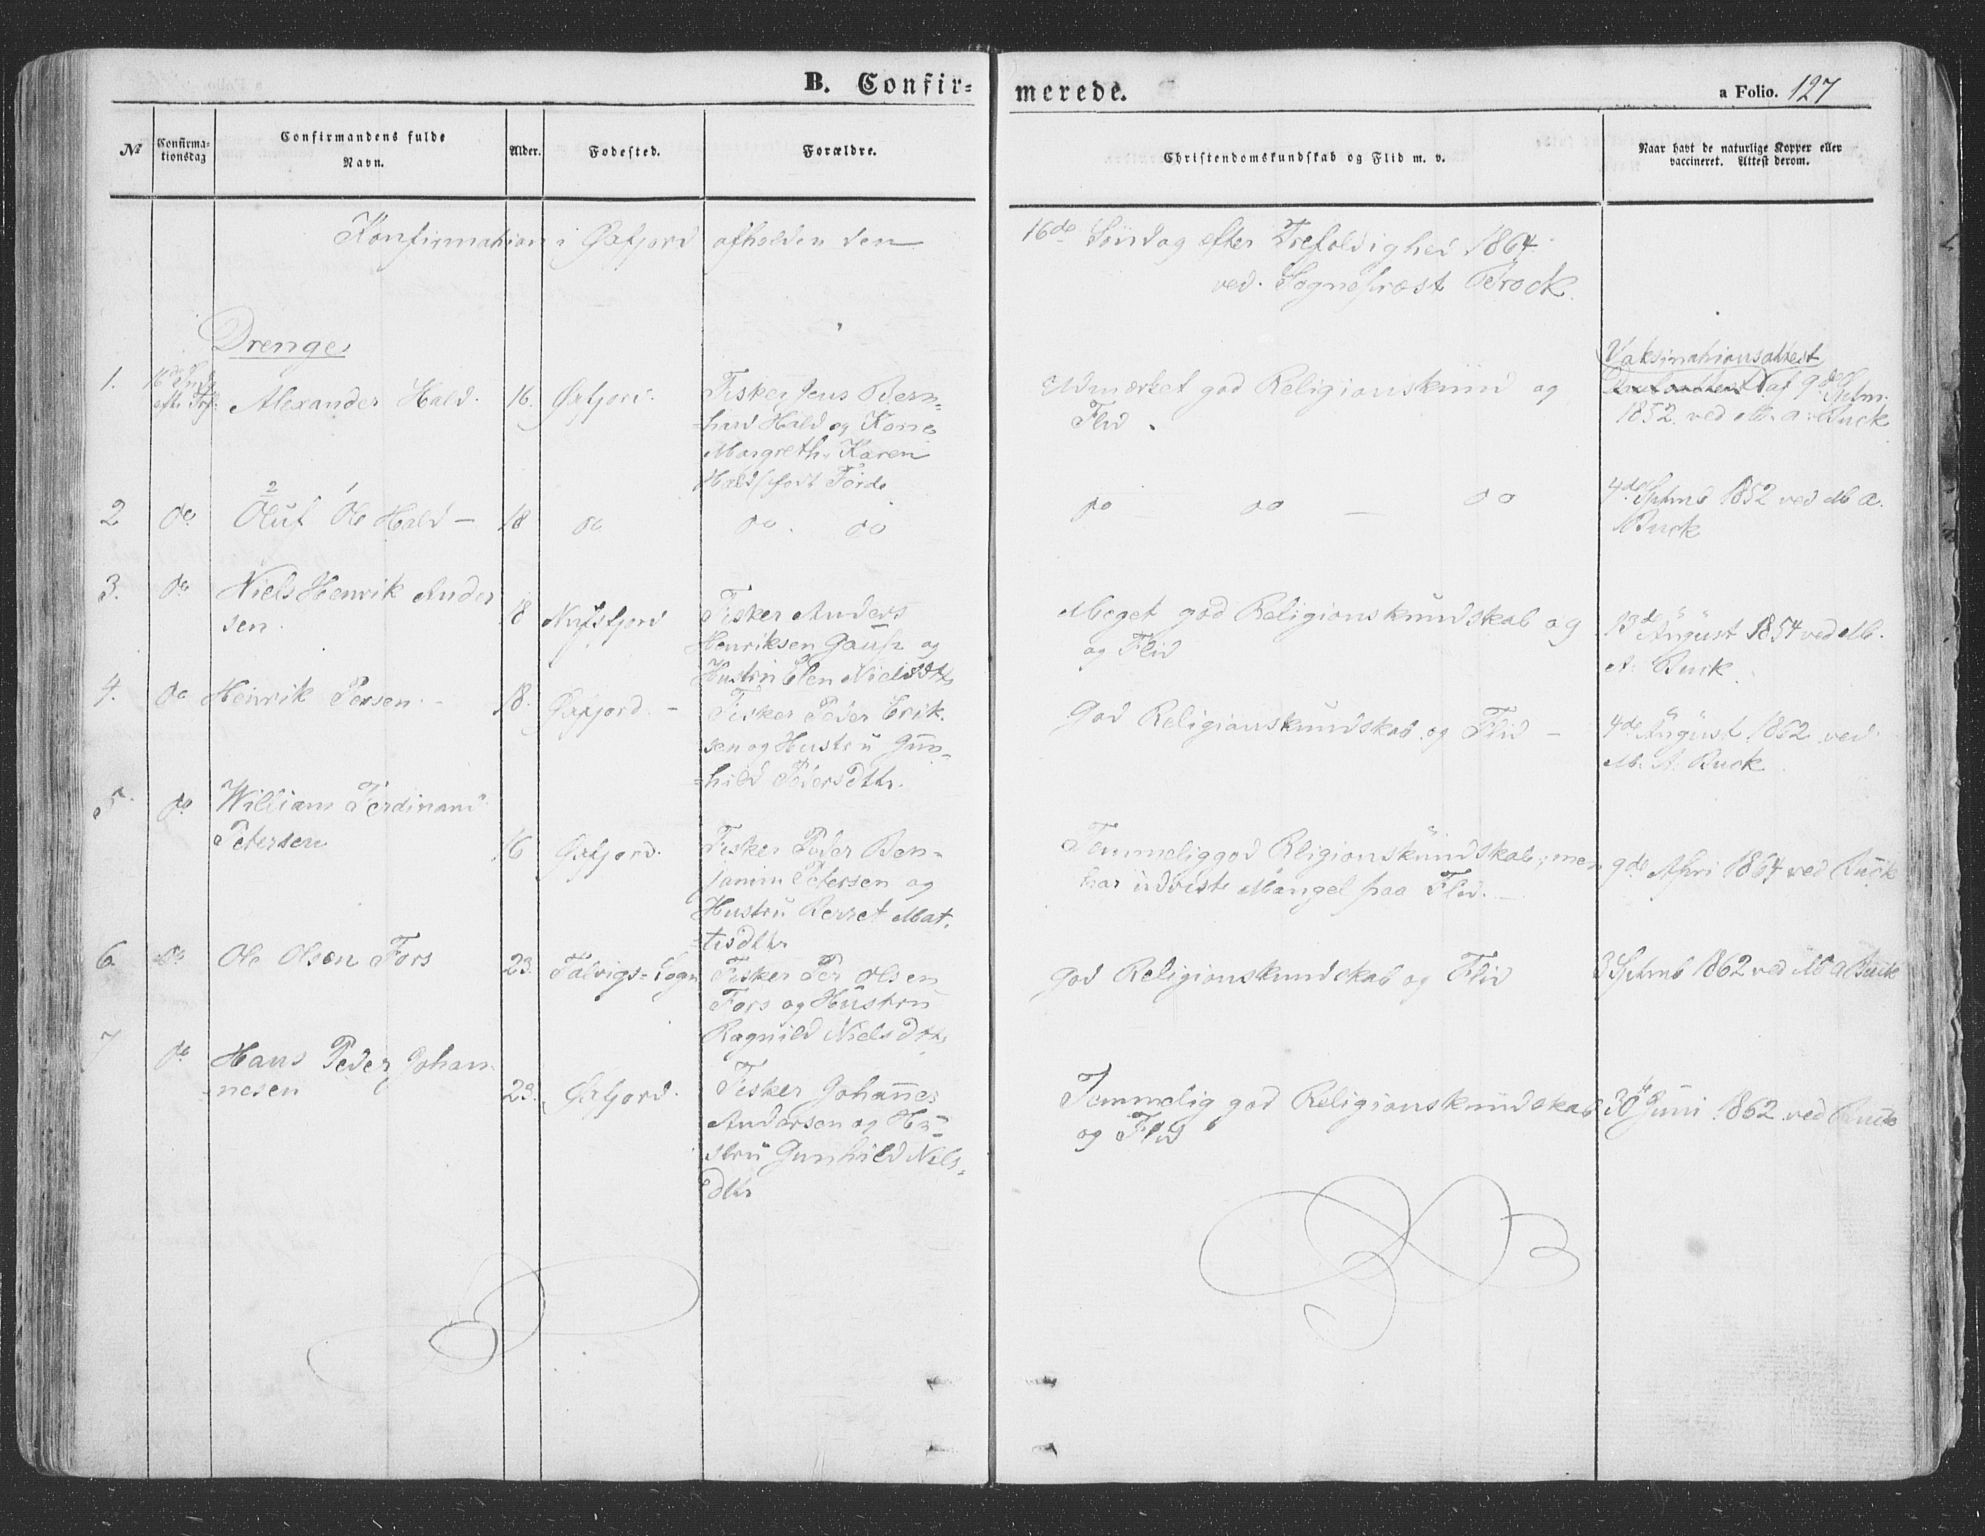 B. Confir-
merede.
a Folio. 127
№
Confirma-
tionsdag
Confirmandens fulde
Navn.
Alder.
Fødested.
Forældre.
Christendomskundskab og Flid m. v.
Naar havt de naturlige Kopper eller
vaccineret. Attest derom.
Konfirmation i Øxfjord afholden den
16de Søndag efter Trefoldighed 1864
ved Sognepræst Brock.
Drenge
1. 16de Snd. Alexander Hald. 16. Øxfjord. Fisker Jens Bern-
efter Tref.
hard Hald og Kone
Margreth Karen
Hald født Førde
Udmærket god Religionskund og
Flid.
Vaksinationsattest
af 9de Sptm.
1852 ved M. A. Buck
2 do Oluf Ole Hald - 18 do do. do
do - do - do
4de Sptmb 1852 ved M A.
Buck
3. do Niels Henrik Ander
sen. 18 Nufsfjord Fisker Anders
Henriksen Gaup og
Hustru Elen Nielsdtr
Meget god Religionskundskab og
og Flid
13de August 1854 ved M.
A. Buck.
4. do Henrik Persen. - 18. Øxfjord. - Fisker Peder Erik-
sen og Hustru Gun-
hild Pedersdtr.
God Religionskundskab og Flid -
4de August 1862 ved
M. A. Buck
5. do William Ferdinand
Petersen 16 Øxfjord. Fisker Peder Ben-
jamin Petersen og
Hustru Berret Mat-
tisdtr
Temmelig god Rligionskundskab; men
har udviste Mangel paa Flid. -
9de Apri 1864 ved Buck
6. do Ole Olsen Fors 23. Talvigs-Sogn Fisker Per Olsen
Fors og Hustru
Ragnild Nielsdtr
God Religionskundskab og Flid
3 Sptmb 1862 ved M A Buck
7 do Hans Peder Johan-
nesen 23. Øxfjord. Fisker Johannes
Andersen og Hu-
stru Gunhild Nils-
dtr
Temmelig god Religionskundskab
og Flid
30 Juni 1862 ved Buck